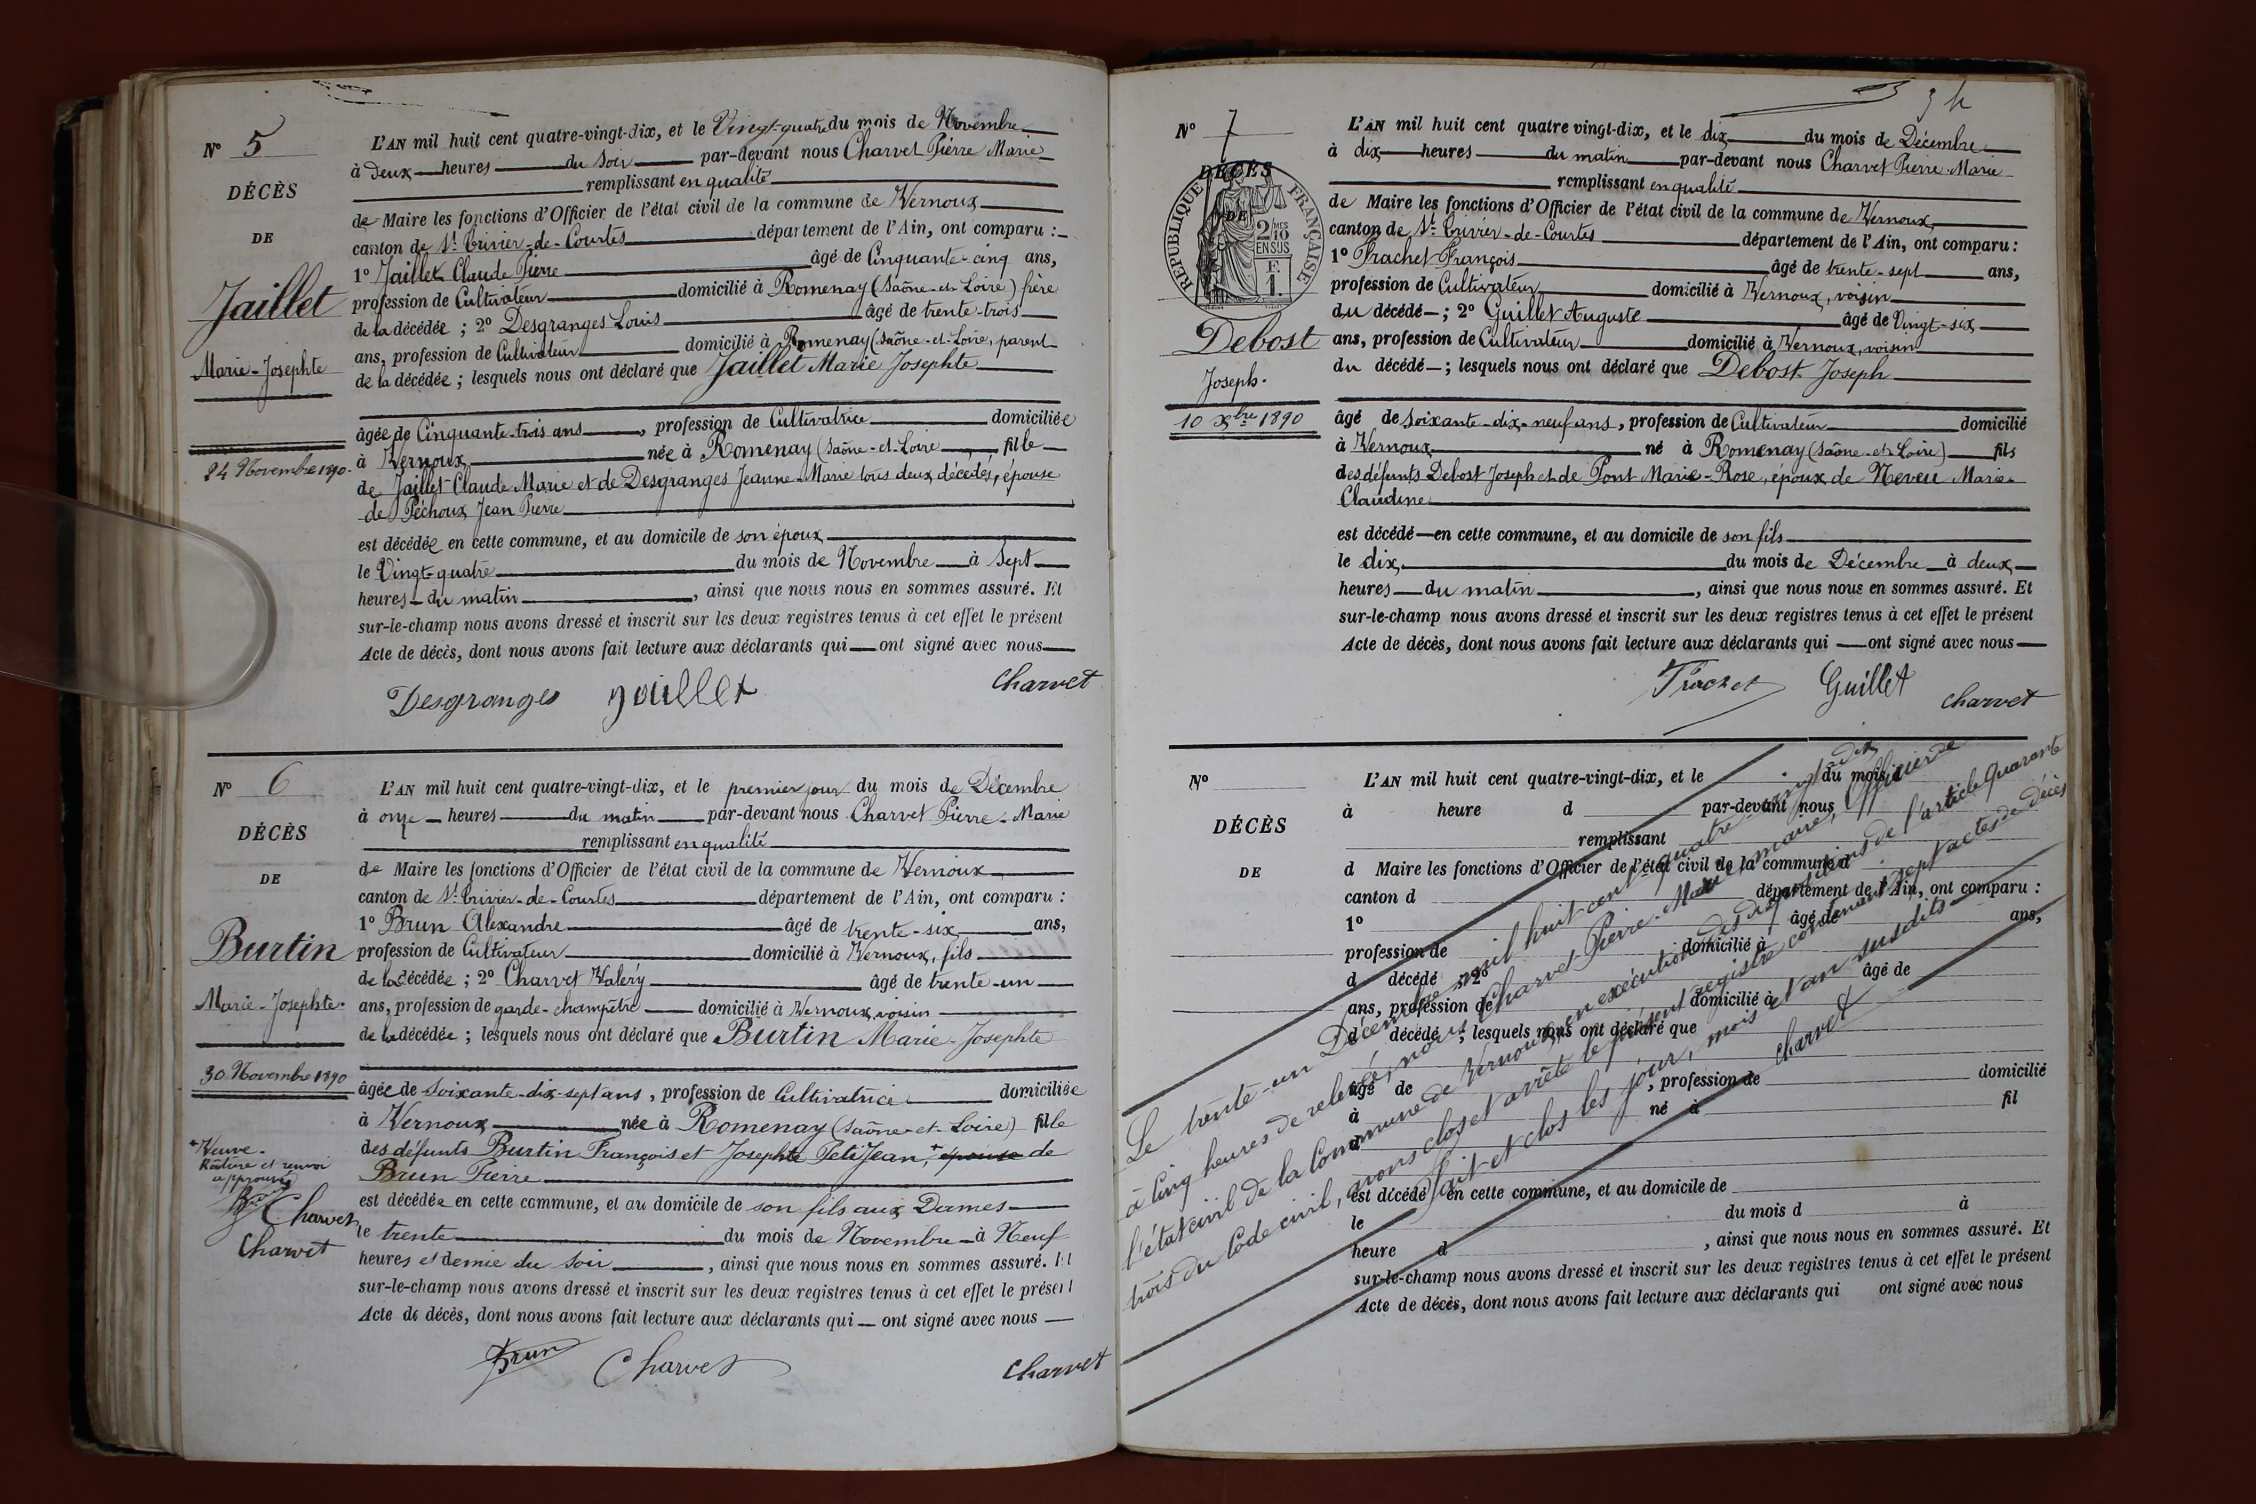 N° 5
DÉCÈS
DE
Jaillet
Marie-Josephte
24 Novembre 1890.
L'AN mil huit cent quatre-vingt-dix, et le Vingt-quatre du mois de Novembre
à Deux heures du soir par-devant nous Charvet Pierre Marie
remplissant en qualité
de Maire les fonctions d'Officier de l'état civil de la commune de Vernoux
canton de St Trivier-de-Courtes département de l'Ain, ont comparu :
1° Jaillet Claude Pierre âgé de Cinquante-cinq ans,
profession de Cultivateur domicilié à Romenay (Saône-et-Loire) frère
de la décédée ; 2° Desgranges Louis âgé de trente-trois
ans, profession de Cultivateur domicilié à Romenay (Saône-et-Loire, parent
de la décédée ; lesquels nous ont déclaré que Jaillet Marie Josephte
âgée de Cinquante-trois ans, profession de Cultivatrice domiciliée
à Vernoux née à Romenay (Saône-et-Loire fille
de Jaillet Claude Marie et de Desgranges Jeanne-Marie tous deux décédés, épouse
de Péchoux Jean Pierre
est décédée en cette commune, et au domicile de son époux
le Vingt-quatre du mois de Novembre à Sept
heures du matin, ainsi que nous nous en sommes assuré. Et
sur-le-champ nous avons dressé et inscrit sur les deux registres tenus à cet effet le présent
Acte de décès, dont nous avons fait lecture aux déclarants qui ont signé avec nous
Desgranges Jaillet Charvet
N° 6
DÉCÈS
DE
Burtin
Marie-Josephte.
30 Novembre 1890
+ Veuve.
Râture et renvoi
approuvé
Charvet
Charvet
L'AN mil huit cent quatre-vingt-dix, et le premier jour du mois de Décembre
à onze heures du matin par-devant nous Charvet Pierre-Marie
remplissant en qualité
de Maire les fonctions d'Officier de l'état civil de la commune de Vernoux
canton de St Trivier-de-Courtes département de l'Ain, ont comparu :
1° Brun Alexandre âgé de trente-six ans,
profession de Cultivateur domicilié à Vernoux, fils
de la décédée ; 2° Charvet Valéry âgé de trente-un
ans, profession de garde-champêtre domicilié à Vernoux, voisin
de la décédée ; lesquels nous ont déclaré que Burtin Marie-Josephte
âgée de Soixante-dix-sept ans, profession de Cultivatrice domiciliée
à Vernoux née à Romenay (Saône-et-Loire) fille
des défunts Burtin François et Josephte PetitJean, + épouse de
Brun Pierre
est décédée en cette commune, et au domicile de son fils aux Dames
le trente du mois de Novembre à Neuf
heures et demie du Soir, ainsi que nous nous en sommes assuré. Et
sur-le-champ nous avons dressé et inscrit sur les deux registres tenus à cet effet le présent
Acte de décès, dont nous avons fait lecture aux déclarants qui ont signé avec nous
Brun Charvet Charvet
N° 7
DÉCÈS
DE
RÉPUBLIQUE FRANÇAISE
2/10 EN SUS
F. 1.
Debost
Joseph.
10 Xbre 1890
L'AN mil huit cent quatre vingt-dix, et le dix du mois de Décembre
à dix heures du matin par-devant nous Charvet Pierre Marie
remplissant en qualité
de Maire les fonctions d'Officier de l'état civil de la commune de Vernoux
canton de St Trivier-de-Courtes département de l'Ain, ont comparu :
1° Trachet François âgé de trente-sept ans,
profession de Cultivateur domicilié à Vernoux, voisin
du décédé ; 2° Guillet Auguste âgé de Vingt-six
ans, profession de Cultivateur domicilié à Vernoux, voisin
du décédé ; lesquels nous ont déclaré que Debost Joseph
âgé de Soixante-dix-neuf ans, profession de Cultivateur domicilié
à Vernoux né à Romenay (Saône-et-Loire) fils
des défunts Debost Joseph et de Pont Marie-Rose, époux de Neveu Marie-
Claudine
est décédé en cette commune, et au domicile de son fils
le dix du mois de Décembre à deux
heures du matin, ainsi que nous nous en sommes assuré. Et
sur-le-champ nous avons dressé et inscrit sur les deux registres tenus à cet effet le présent
Acte de décès, dont nous avons fait lecture aux déclarants qui ont signé avec nous
Trachet Guillet Charvet
N°
DÉCÈS
DE
L'AN mil huit cent quatre-vingt-dix, et le du mois d
à heure d par-devant nous
remplissant
d Maire les fonctions d'Officier de l'état civil de la commune d
canton d département de l'Ain, ont comparu :
1° âgé de ans,
profession de domicilié à
d décédé ; 2° âgé de
ans, profession de domicilié à
d décédé ; lesquels nous ont déclaré que
âgé de , profession de domicilié
à né à fil
d
est décédé en cette commune, et au domicile de
le du mois d à
heure d , ainsi que nous nous en sommes assuré. Et
sur-le-champ nous avons dressé et inscrit sur les deux registres tenus à cet effet le présent
Acte de décès, dont nous avons fait lecture aux déclarants qui ont signé avec nous
Le trente-un Décembre mil huit cent quatre vingt dix
à Cinq heures de relevée, nous Charvet Pierre-Marie, maire, Officier de
l'état civil de la Commune de Vernoux, en exécution des dispositions de l'article Quarante
trois du Code civil, avons clos et arrêté le présent registre contenant sept actes de décès
Fait et clos les jour, mois et an susdits
Charvet